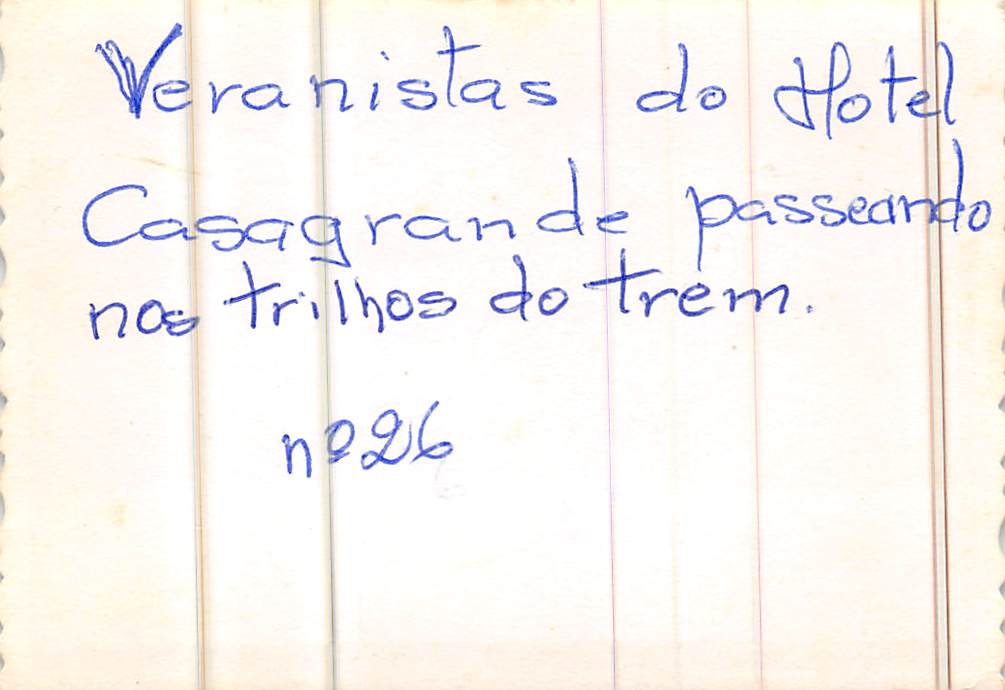 Veranistas do Hotel
Casagrande passeando
nos trilhos do trem.
nº 26